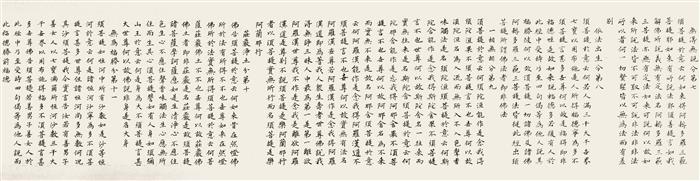 無得無說分第七
須菩提於意云何如來得阿耨多羅三藐三菩
提耶如來有所說法耶須菩提言如我
解佛所說義無有定法名阿耨多羅三藐三菩
提亦無有定法如來可說何以故如來
所說法皆不可取不可說非法非非法
所以者何一切賢聖皆以無為法而有差
別
依法出生分第八
須菩提於意云何若人滿三千大千世界
七寶以用布施是人所得福德寧為多不
須菩提言甚多世尊何以故是福德即非福
德性是故如來說福德多若復有人於
此經中受持乃至四句偈等為他人說其
福勝彼何以故須菩提一切諸佛及諸佛
阿耨多羅三藐三菩提法皆從此經出須
菩提所謂佛法者即非佛法
一相無相分第九
須菩提於意云何須陀洹能作是念我得
須陀洹果不須菩提言不也世尊何以故須
陀洹名為入流而無所入不入色聲香
味觸法是名須陀洹須菩提於意云何斯
陀含能作是念我得斯陀含果不須菩提
言不也世尊何以故斯陀含名一往來而
實無往來是名斯陀含須菩提於意云何
阿那含能作是念我得阿那含果不須菩
提言不也世尊何以故阿那含名為不來
而實無不來是故名阿那含須菩提於意
云何阿羅漢能作是念我得阿羅漢道不
須菩提言不也世尊何以故實無有法名
阿羅漢世尊若阿羅漢作是念我得阿羅
漢道即為著我人眾生壽者世尊佛說我
得無諍三昧人中最為第一是第一離欲阿
羅漢我不作是念我是離欲阿羅漢世尊我若作是念我得阿羅
漢道世尊則不說須菩提是樂阿蘭那行
者以須菩提實無所行而名須菩提是樂
阿蘭那行
莊嚴淨土分第十
佛告須菩提於意云何如來昔在然燈佛
所於法有所得不不也世尊如來在然燈佛
所於法實無所得須菩提於意云何菩
薩莊嚴佛土不不也世尊何以故莊嚴佛
土者即非莊嚴是名莊嚴是故須菩提
諸菩薩摩訶薩應如是生清淨心不應住
色生心不應住聲香味觸法生心應無所
住而生其心須菩提譬如有人身如須彌
山王於意云何是身為大不須菩提言甚
大世尊何以故佛說非身是名大身
無為福勝分第十一
須菩提如恆河中所有沙數如是沙等恆
河於意云何是諸恆河沙寧為多不須菩
提言甚多世尊但諸恆河尚多無數何況
其沙須菩提我今實言告汝若有善男子
善女人以七寶滿爾所恆河沙數三千大
千世界以用布施得福多不須菩提言甚多
世尊佛告須菩提若善男子善女人於
此經中乃至受持四句偈等為他人說而
此福德勝前福德